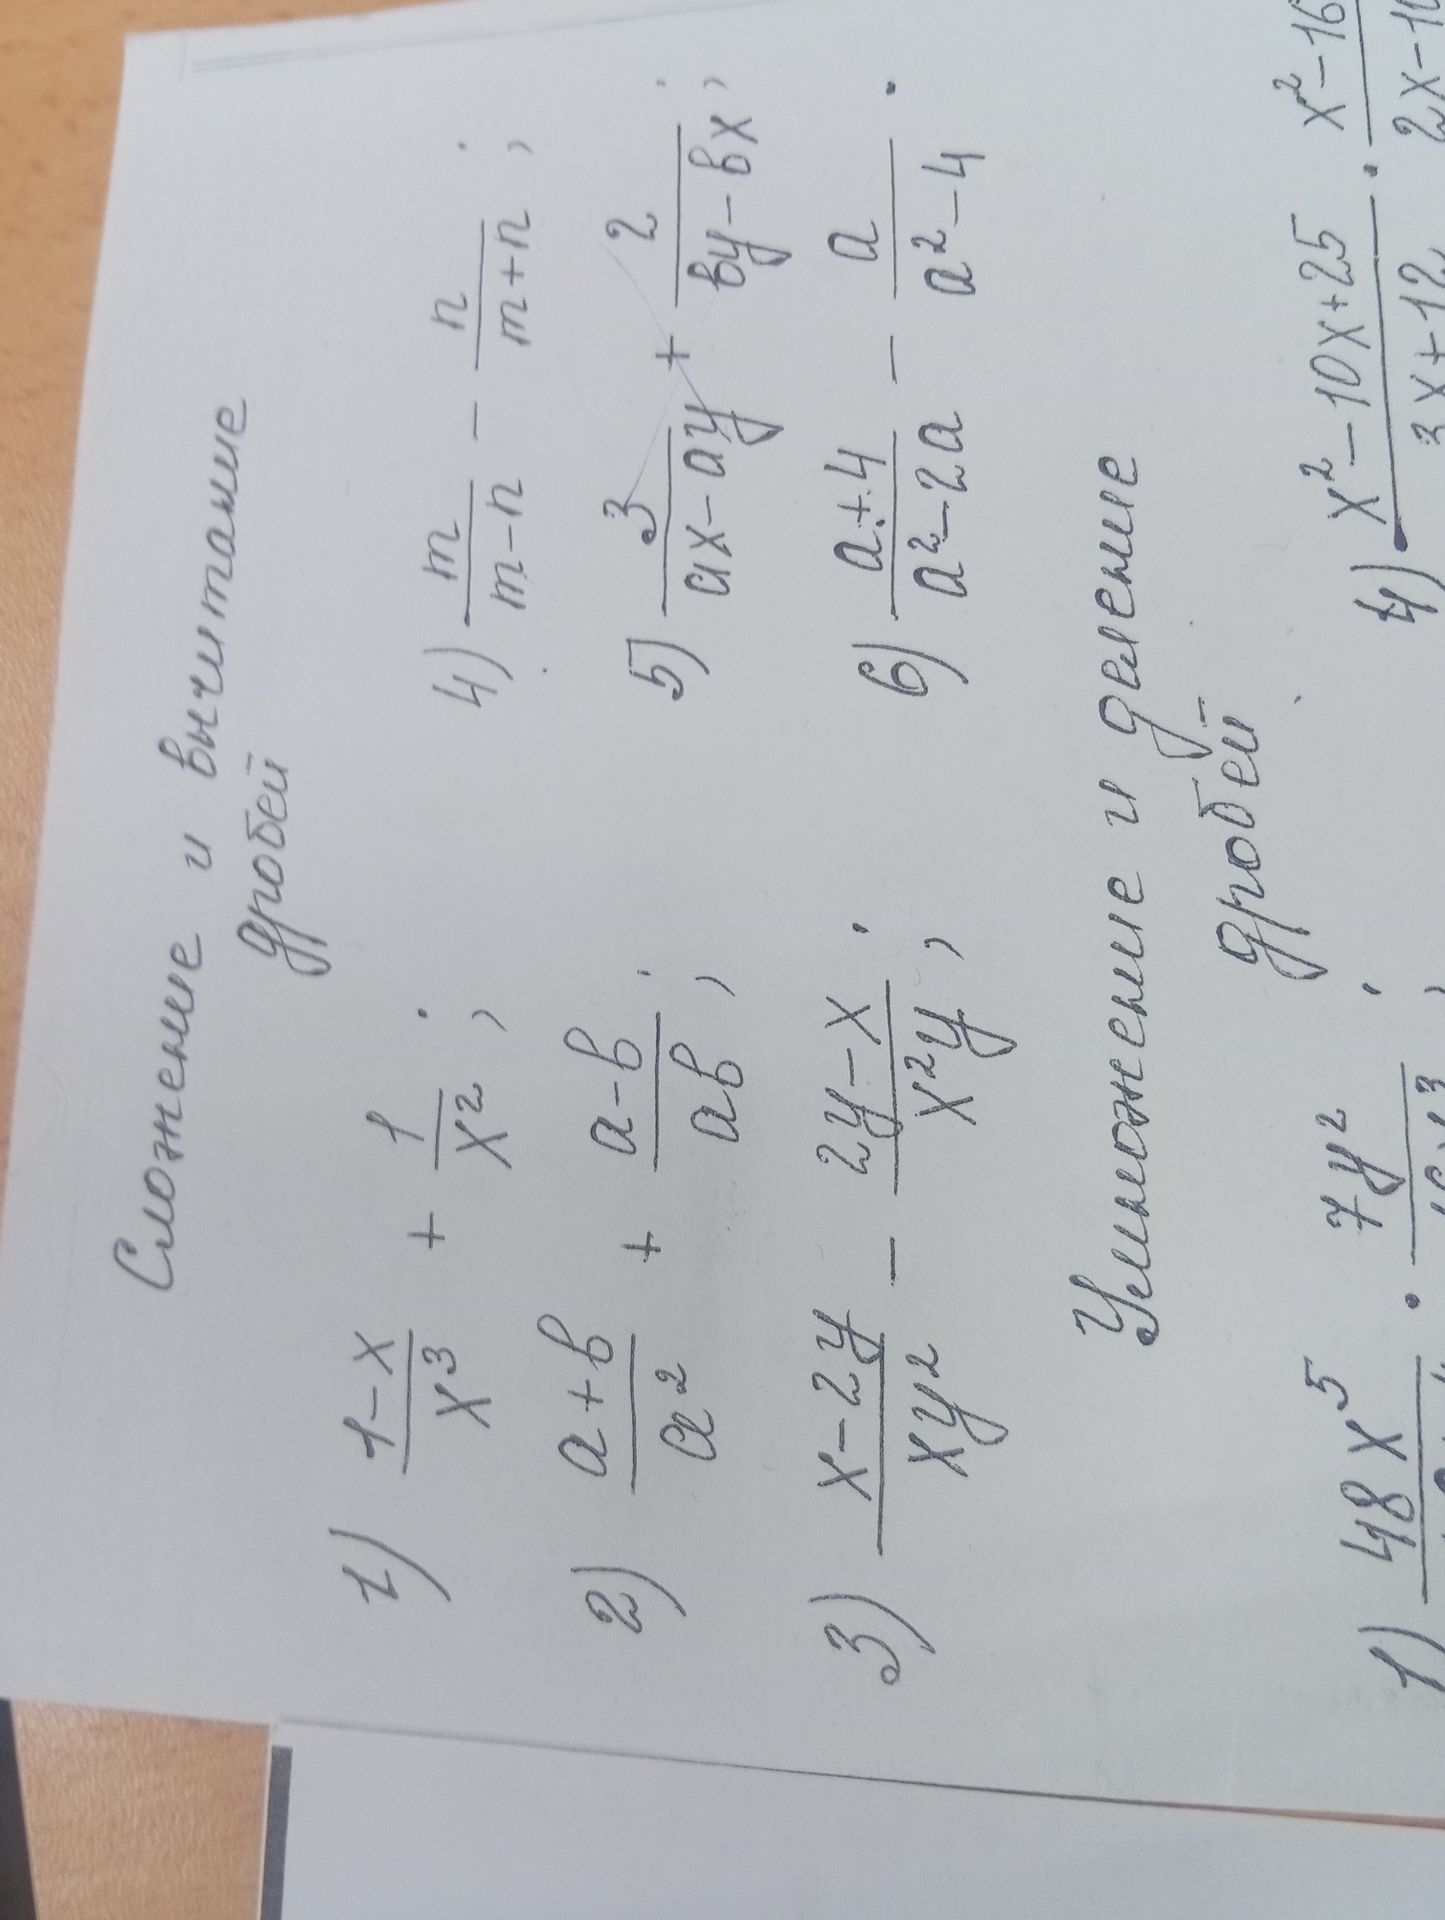 Сложение и вычитание
дробей
1) (1-x)/x³ + 1/x²;
2) (a+b)/a² + (a-b)/ab;
3) (x-2y)/xy² - (2y-x)/x²y;
4) m/(m-n) - n/(m+n);
5) 3/(ax-ay) + 2/(by-bx);
6) (a+4)/(a²-2a) - a/(a²-4).
Умножение и деление
дробей
1) 48x⁵ · 7y²;
4) (x²-10x+25)/(3x+12) : x²-16